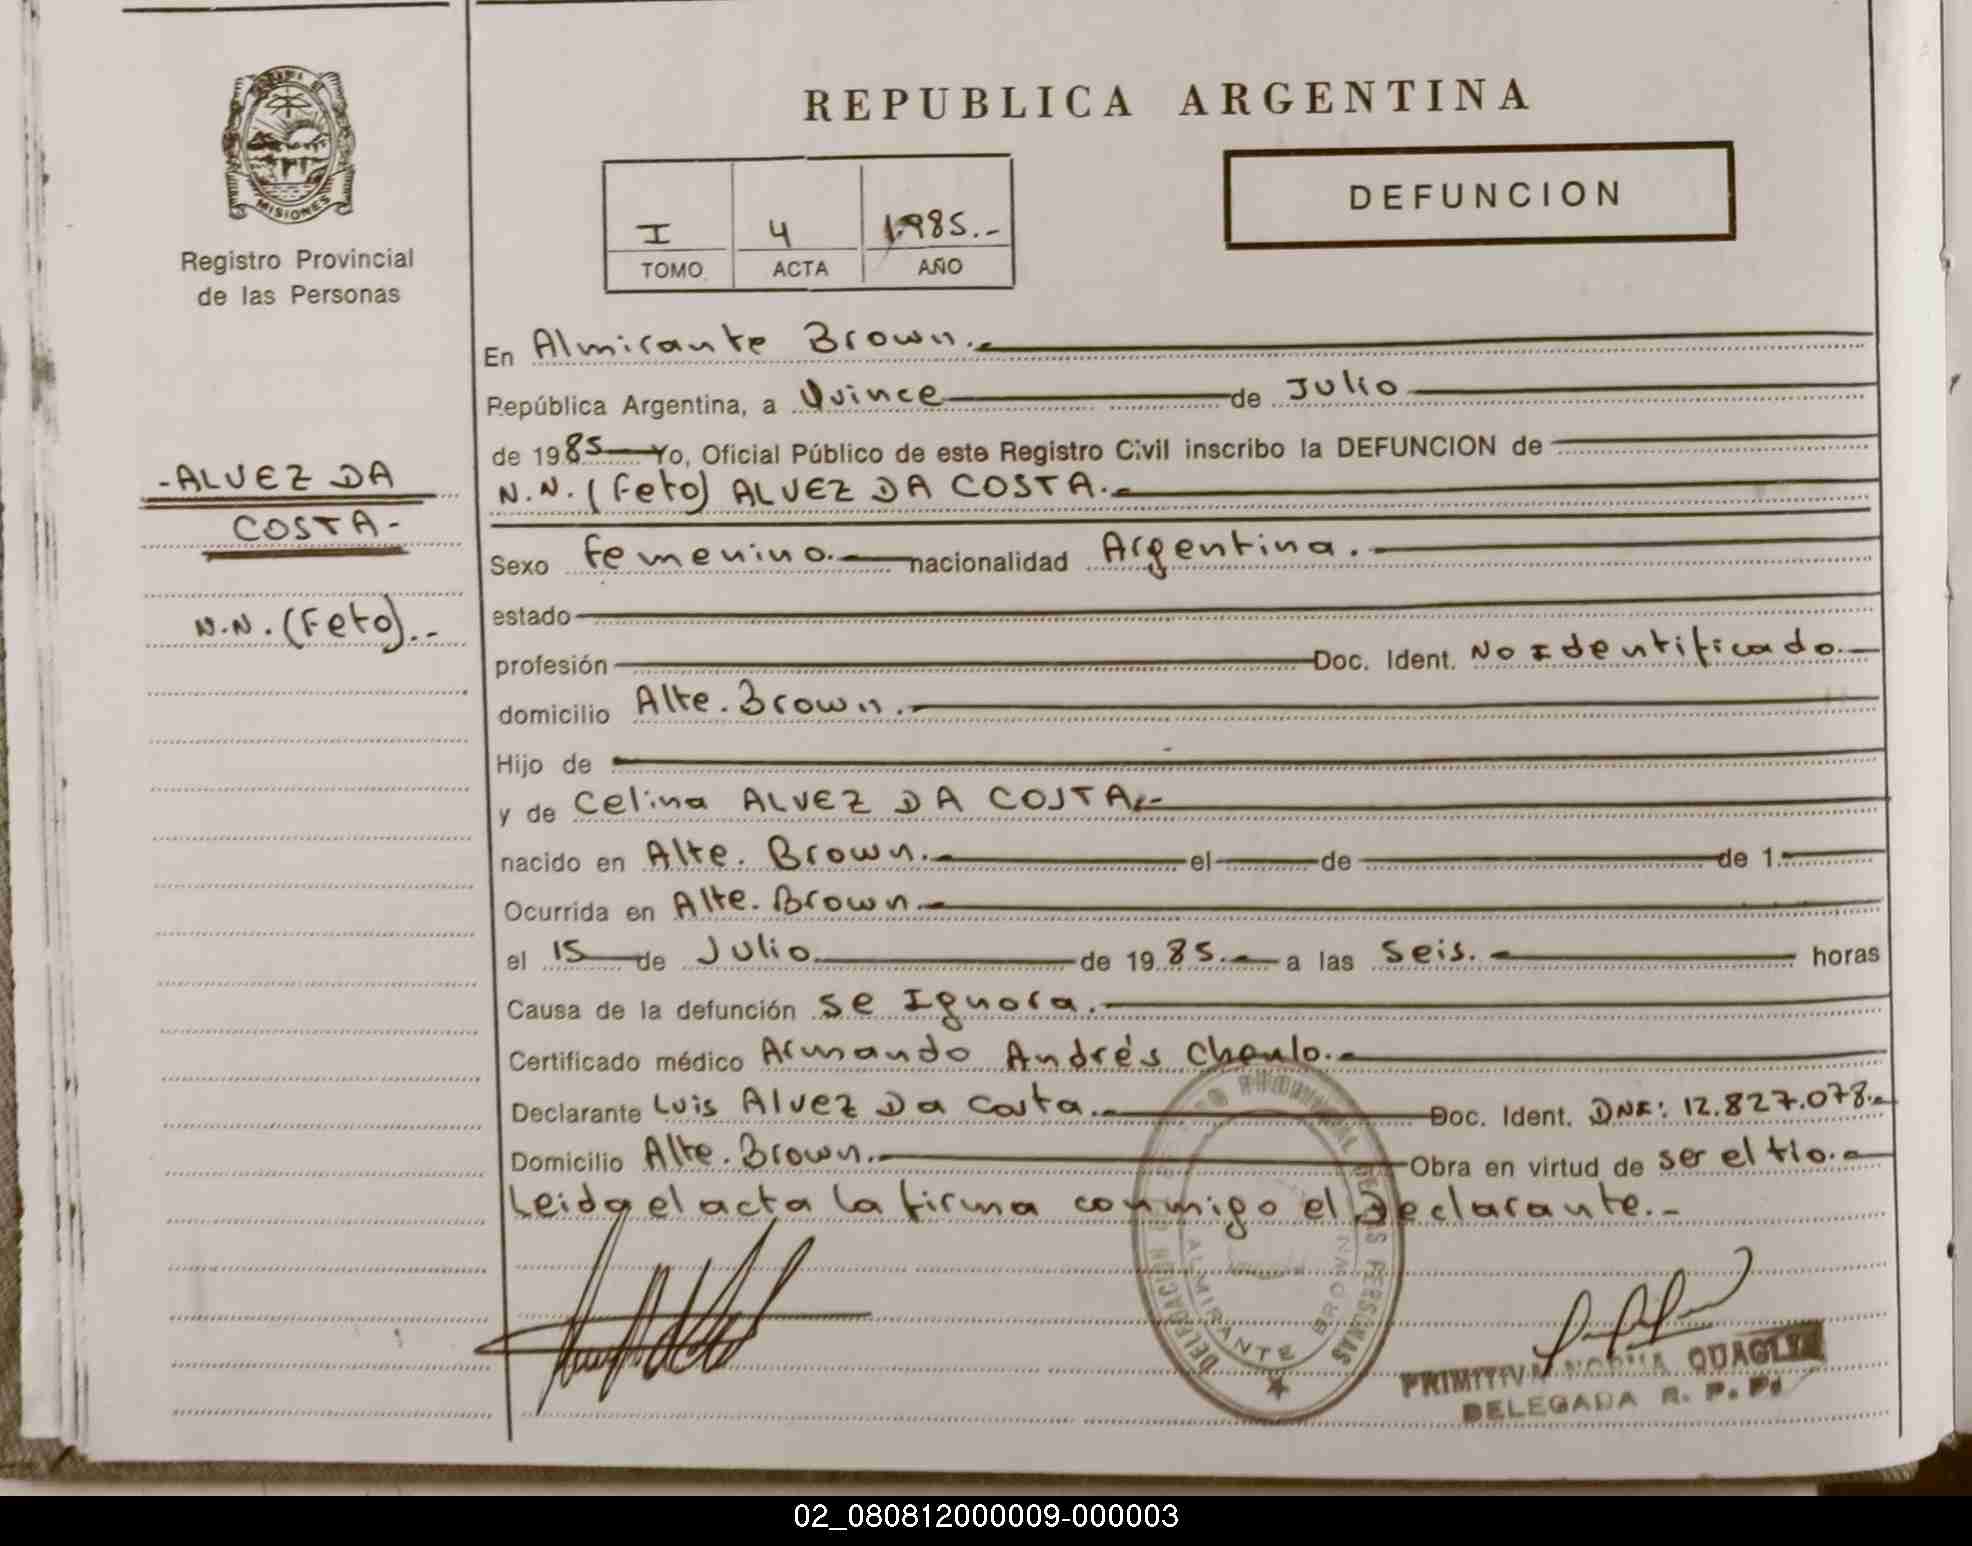 REPUBLICA ARGENTINA
DEFUNCION
I 4 1.985.-
TOMO ACTA AÑO
MISIONES
Registro Provincial
de las Personas
-ALVEZ DA
COSTA-
N.N. (Feto).-
En Almirante Brown.-
República Argentina, a Quince de Julio
de 1985 Yo, Oficial Público de este Registro Civil inscribo la DEFUNCION de
N.N. (Feto) ALVEZ DA COSTA.-
Sexo Femenino.- nacionalidad Argentina.-
estado
profesión Doc. Ident. No Identificado.-
domicilio Alte. Brown.-
Hijo de
y de Celina ALVEZ DA COSTA.-
nacido en Alte. Brown.- el de de 1
Ocurrida en Alte. Brown.-
el 15 de Julio de 1985.- a las Seis.- horas
Causa de la defunción Se Ignora.-
Certificado médico Armando Andrés
Declarante Luis Alvez Da Costa.- Doc. Ident. 12.827.078.-
Domicilio Alte. Brown.- Obra en virtud de ser el tío.-
Leida el acta la firma conmigo el Declarante.-
PROVINCIAL DE LAS PERSONAS
DELEGACION
ALMIRANTE BROWN
PRIMITIVA NORMA QUAGLIA
DELEGADA R. P. P.
02_080812000009-000003